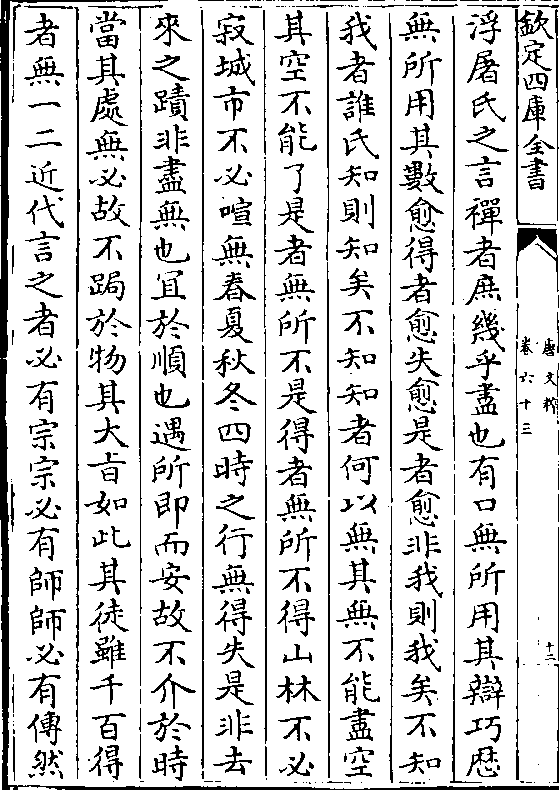 欽定四庫全書
唐文粹
卷六十三
十二
浮屠氏之言禪者庶幾乎盡也有口無所用其辯巧厯
無所用其數愈得者愈失愈是者愈非我則我矣不知
我者誰氏知則知矣不知知者何以無其無不能盡空
其空不能了是者無所不是得者無所不得山林不必
寂城市不必喧無春夏秋冬四時之行無得失是非去
來之蹟非盡無也冝於順也遇所即而安故不介於時
當其處無必故不跼於物其大㫖如此其徒雖千百得
者無一二近代言之者必有宗宗必有師師必有傳然